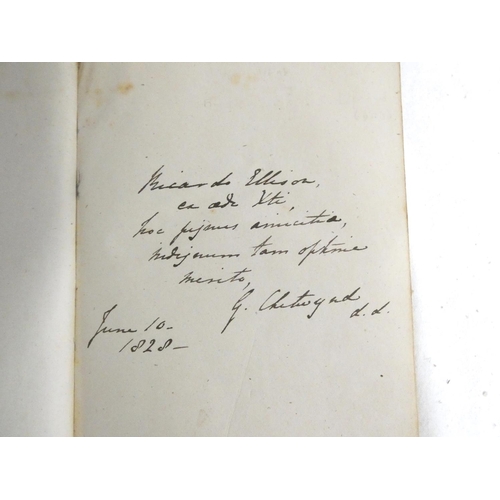 Ricardo Ellison,
ex æde Xti,
hoc pignus amicitiæ,
indignum tam optime
merito,
G. Chetwynd
d.d.
June 10-
1828-